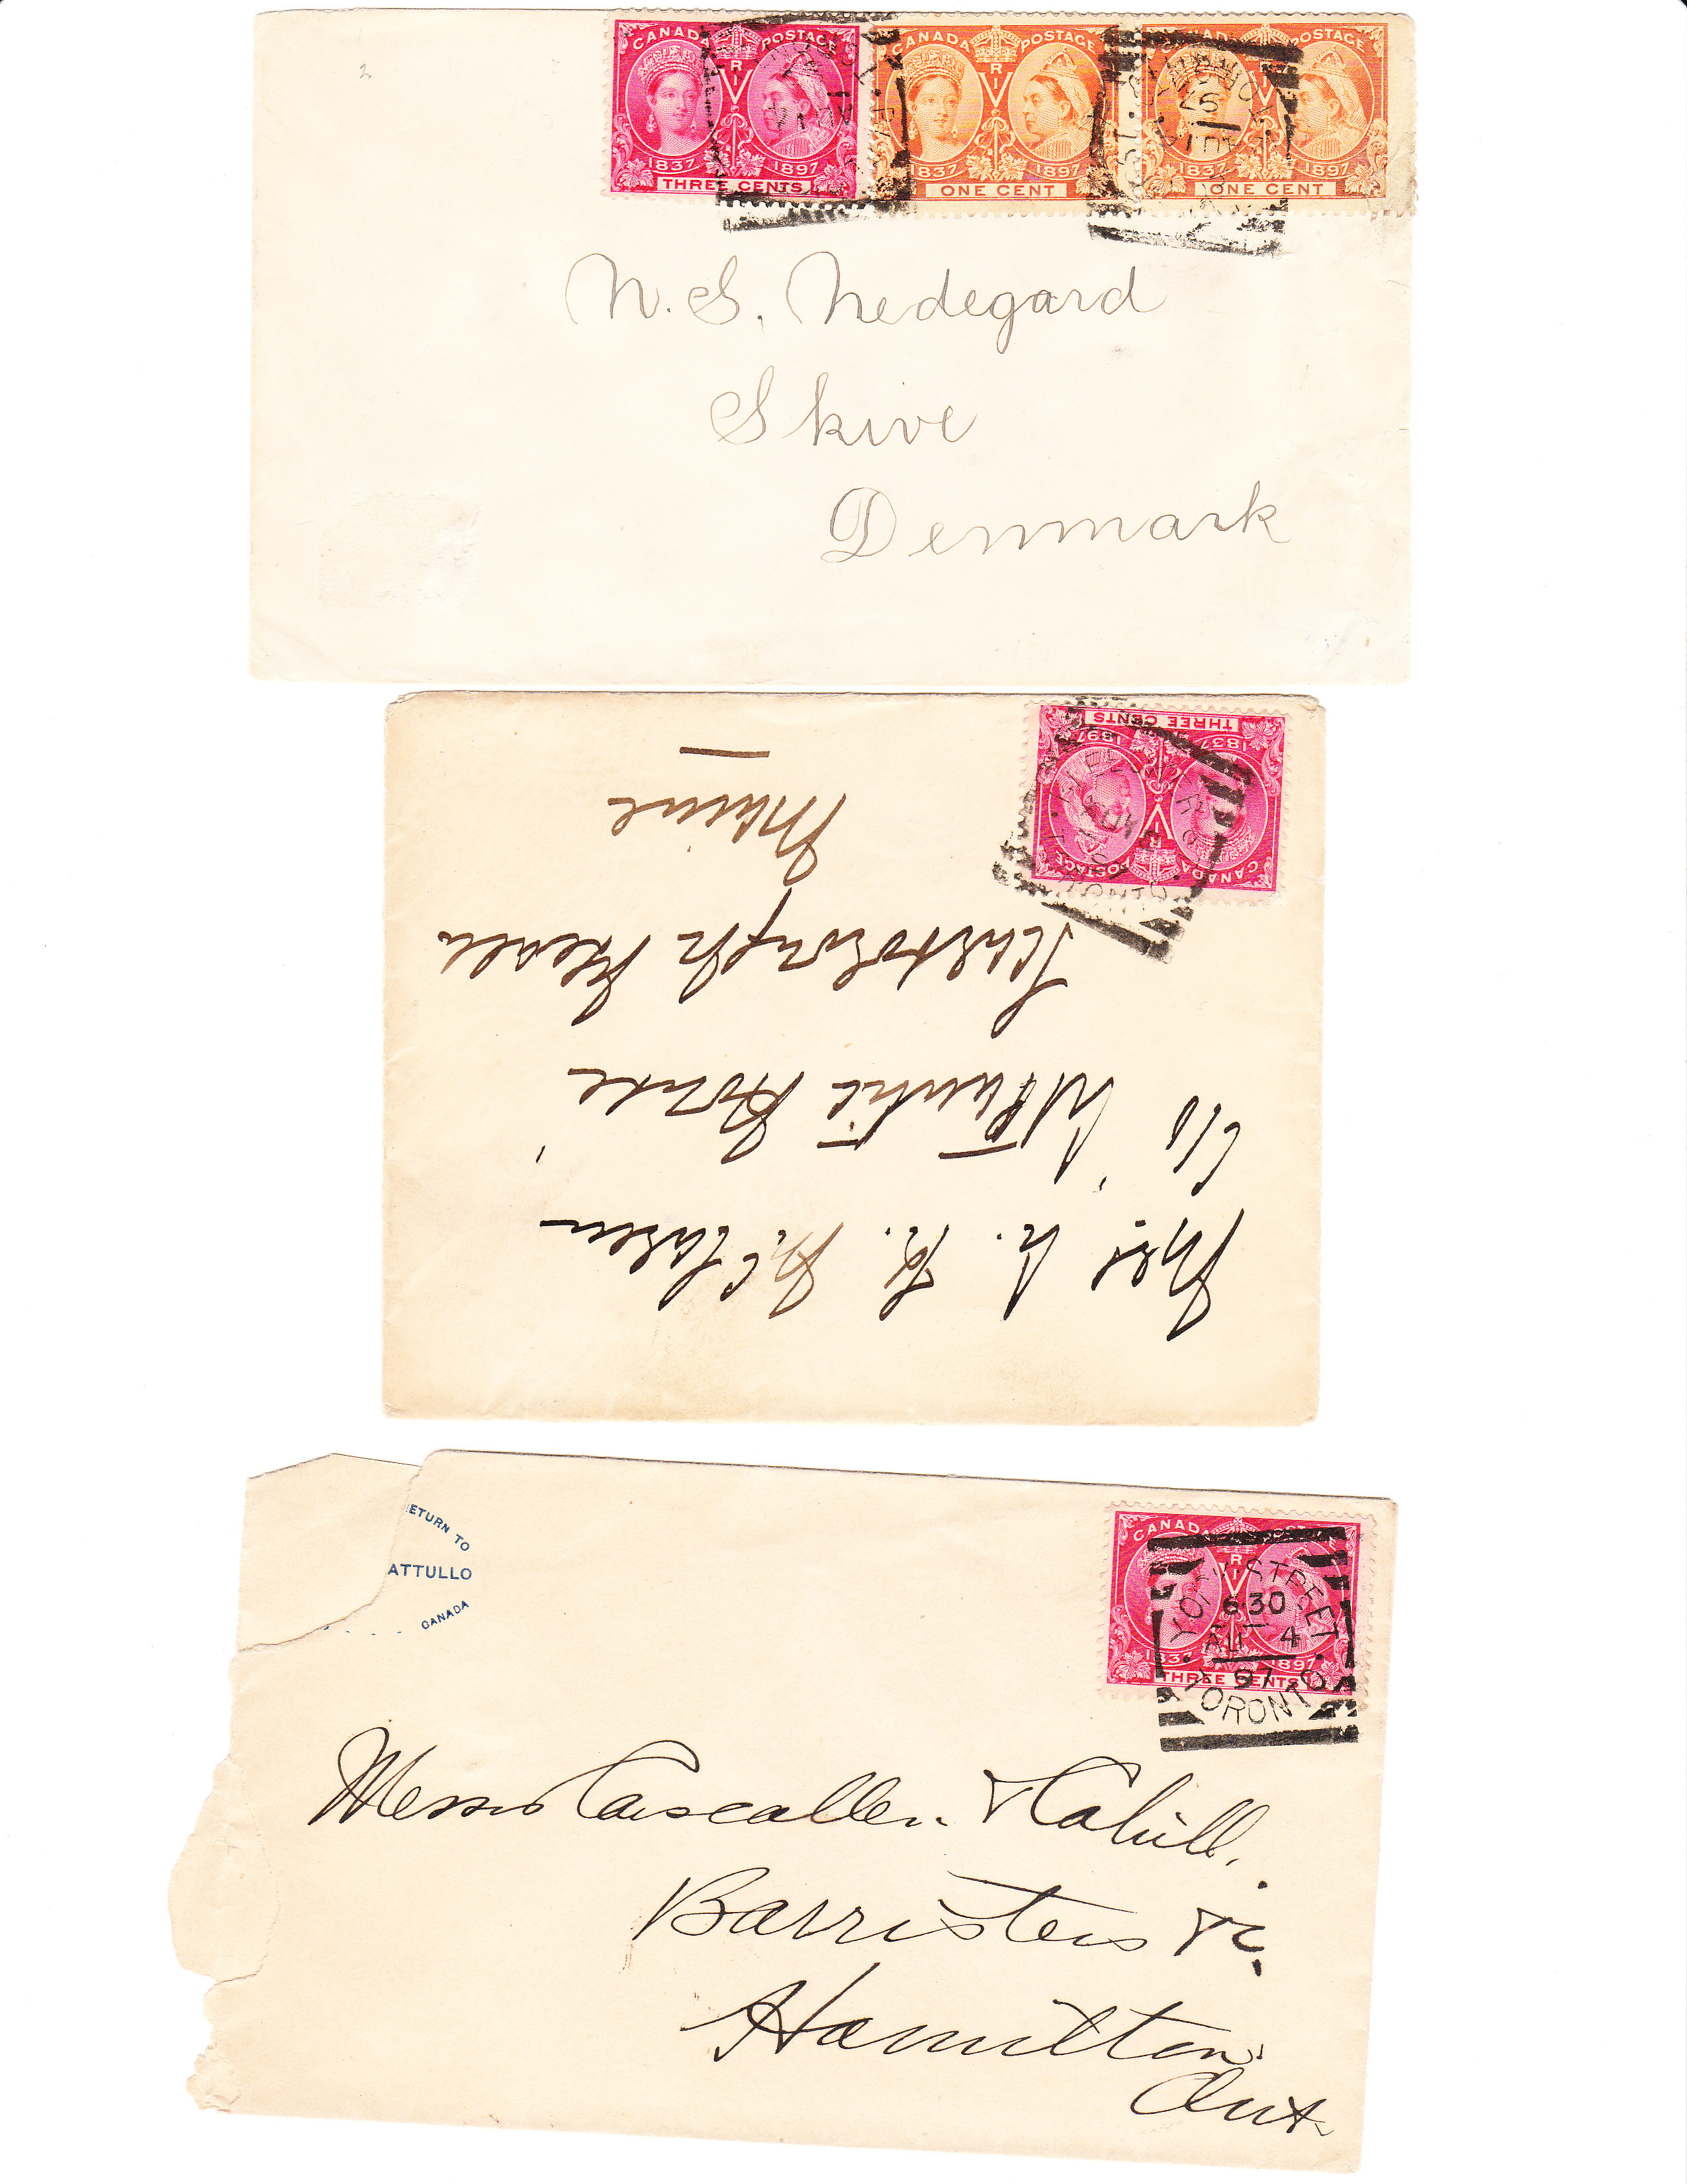 2
CANADA POSTAGE
1837 1897
THREE CENTS
CANADA POSTAGE
1837 1897
ONE CENT
CANADA POSTAGE
1837 1897
ONE CENT
97
N. S. Nedegard
Skive
Denmark
CANADA POSTAGE
1837 1897
THREE CENTS
TORONTO
Mrs
c/o Atlantic House
Scarborough Beach
Maine
RETURN TO
ATTULLO
CANADA
CANADA
1897
THREE CENTS
YORK STREET
6·30
AU 4
97
TORONTO
Messrs Carscallen & Cahill,
Barristers &c.
Hamilton
Ont